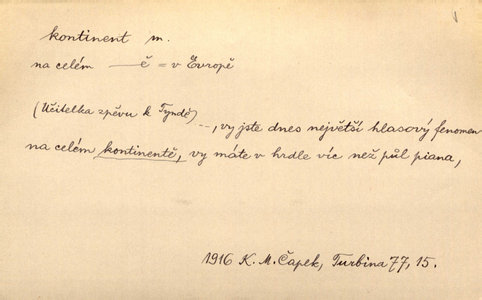 kontinent m.
na celém —ě = v Evropě
(Učitelka zpěvu k Tyndě) —, vy jste dnes největší hlasový fenomen
na celém kontinentě, vy máte v hrdle víc než půl piana,
1916 K. M. Čapek, Turbina 77, 15.